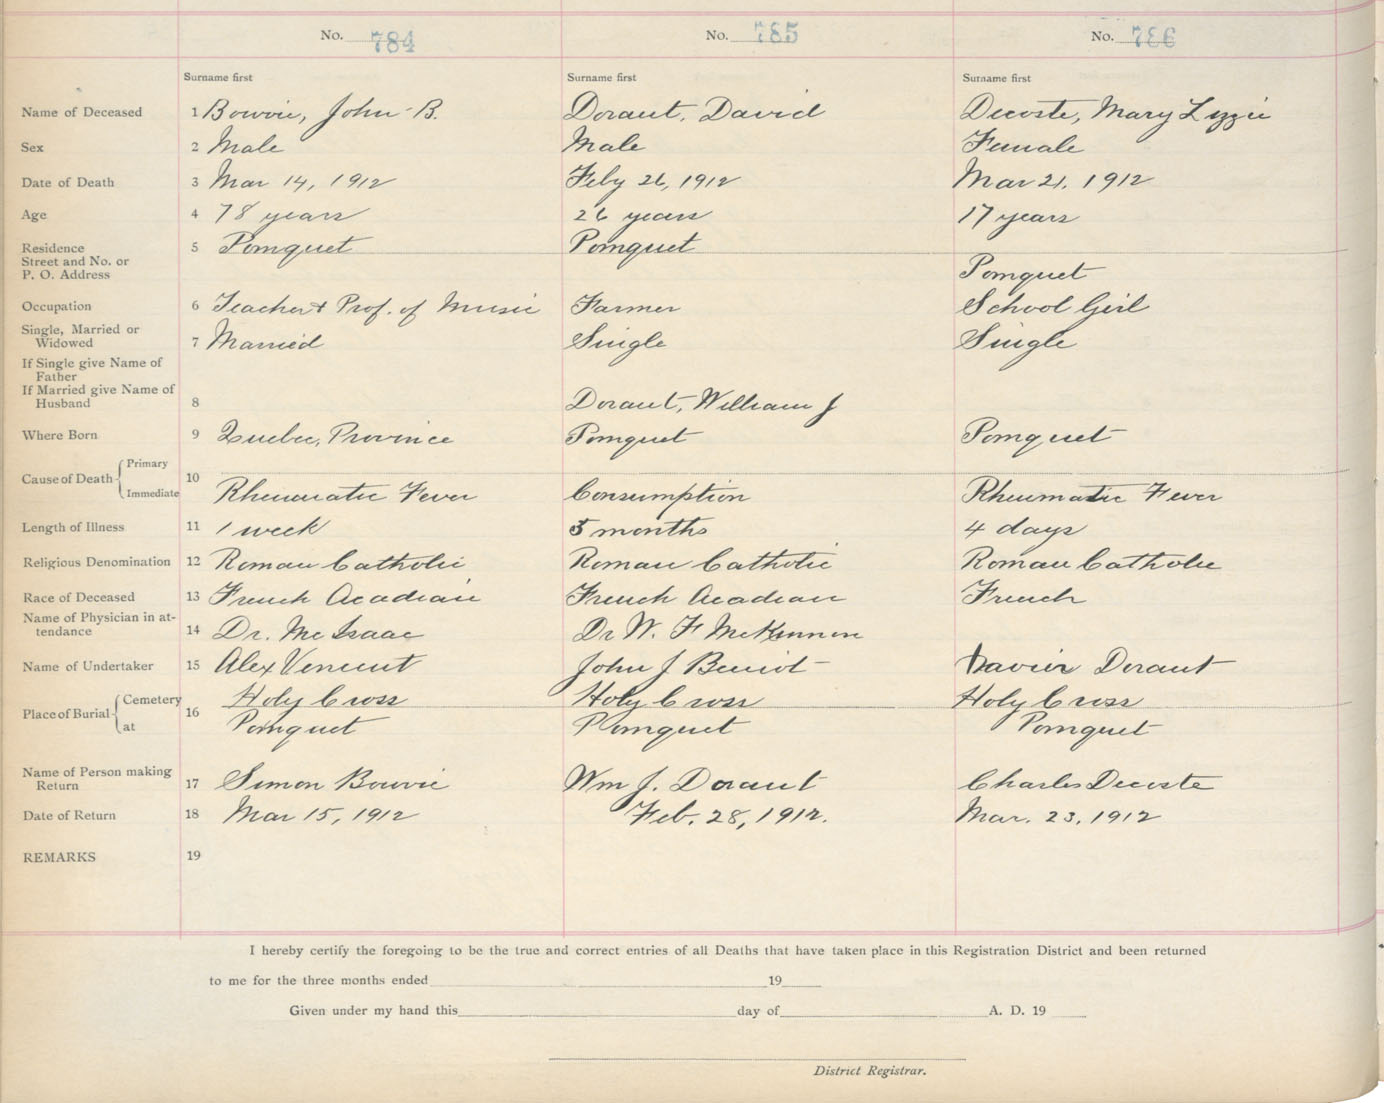 No. 784 No. 785 No. 786
Surname first Surname first Surname first
Name of Deceased 1 Bowie, John B. Doraut, David Decoste, Mary Lizzie
Sex 2 Male Male Female
Date of Death 3 Mar 14, 1912 Feby 26, 1912 Mar 21, 1912
Age 4 78 years 26 years 17 years
Residence 5 Pomquet Pomquet
Street and No. or
P. O. Address Pomquet
Occupation 6 Teacher & Prof. of Music Farmer School Girl
Single, Married or
Widowed 7 Married Single Single
If Single give Name of
Father
If Married give Name of
Husband 8 Doraut, William J
Where Born 9 Quebec, Province Pomquet Pomquet
Primary
Cause of Death 10
Immediate Rheumatic Fever Consumption Rheumatic Fever
Length of Illness 11 1 week 5 months 4 days
Religious Denomination 12 Roman Catholic Roman Catholic Roman Catholic
Race of Deceased 13 French Acadian French Acadian French
Name of Physician in at-
tendance 14 Dr. McIsaac Dr W. F McKinnon
Name of Undertaker 15 Alex Vincent John J Beniot Xavier Doraut
Cemetery Holy Cross Holy Cross Holy Cross
Place of Burial 16
at Pomquet Pomquet Pomquet
Name of Person making
Return 17 Simon Bowie Wm J. Doraut Charles Decoste
Date of Return 18 Mar 15, 1912 Feb. 28, 1912. Mar. 23, 1912
REMARKS 19
I hereby certify the foregoing to be the true and correct entries of all Deaths that have taken place in this Registration District and been returned
to me for the three months ended 19
Given under my hand this day of A. D. 19
District Registrar.